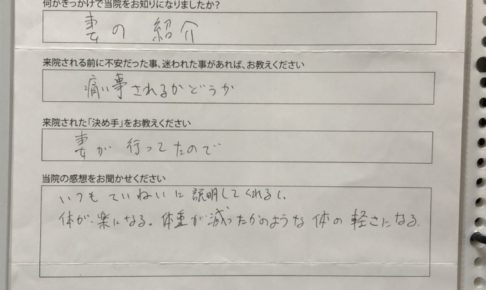 何がきっかけで当院をお知りになりましたか?
妻の紹介
来院される前に不安だった事、迷われた事があれば、お教えください
痛い事されるかどうか
来院された「決め手」をお教えください
妻が行ってたので
当院の感想をお聞かせください
いつもていねいに説明してくれるし、
体が楽になる。体重が減ったかのような体の軽さになる。